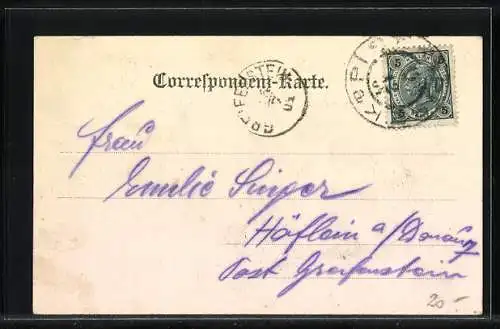 Correspondenz-Karte.
GREIFENSTEIN
5 5
5 5
Frau
Emilie Singer
Höflein a/Donau
Post Greifenstein
20-